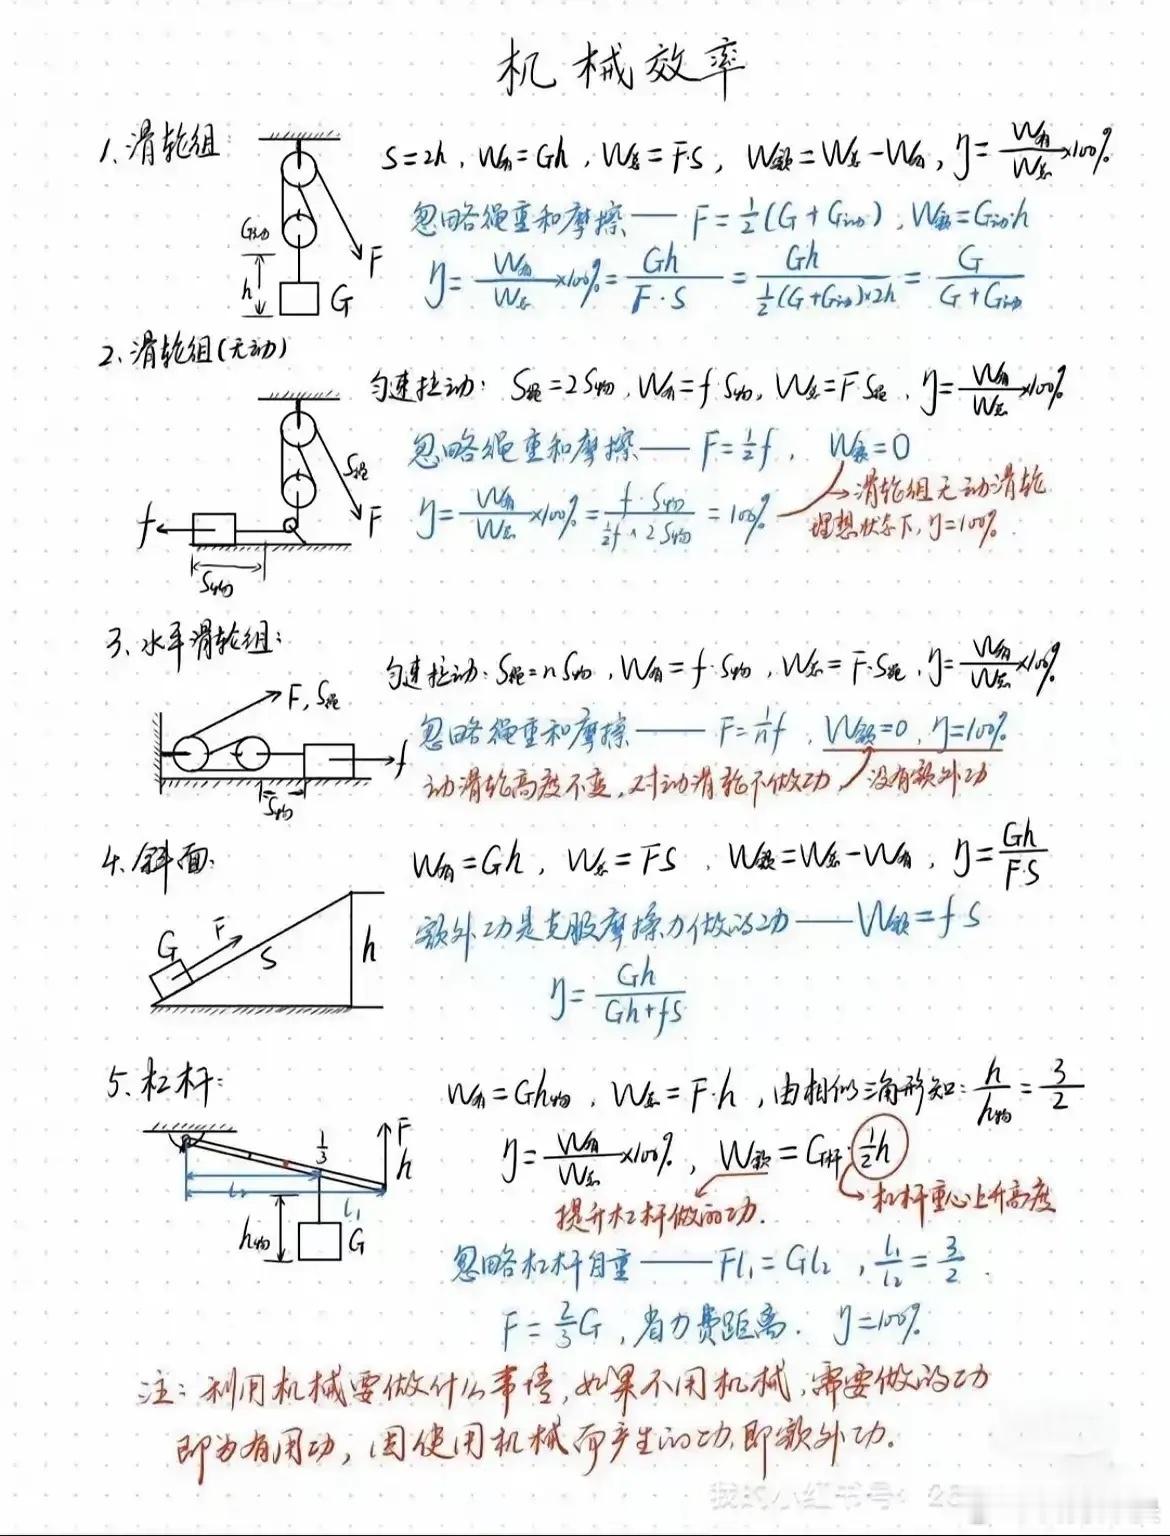 机械效率
1、滑轮组:
S=2h, W有=Gh, W总=F·S, W额=W总-W有, η=W有/W总×100%
忽略绳重和摩擦——F=1/2(G+G动), W额=G动·h
η=W有/W总×100%=Gh/F·S=Gh/1/2(G+G动)×2h=G/G+G动
G动
h
G
F
2、滑轮组(无动)
匀速拉动: S绳=2S物, W有=f·S物, W总=F·S绳, η=W有/W总×100%
忽略绳重和摩擦——F=1/2f, W额=0
η=W有/W总×100%=f·S物/1/2f×2S物=100%
滑轮组无动滑轮
理想状态下,η=100%.
S绳
F
f
S物
3、水平滑轮组:
匀速拉动: S绳=nS物, W有=f·S物, W总=F·S绳, η=W有/W总×100%
忽略绳重和摩擦——F=1/nf, W额=0, η=100%
动滑轮高度不变,对动滑轮不做功, 没有额外功
F, S绳
f
S物
4、斜面:
W有=Gh, W总=FS, W额=W总-W有, η=Gh/F·S
额外功是克服摩擦力做的功——W额=fS
η=Gh/Gh+fS
G
F
S
h
5、杠杆:
W有=Gh物, W总=F·h, 由相似三角形知: h/h物=3/2
η=W有/W总×100%, W额=G杆·1/2h
提升杠杆做的功.
杠杆重心上升高度
忽略杠杆自重——Fl₁=Gl₂, l₁/l₂=3/2.
F=2/3G, 省力费距离. η=100%.
1/3
F
h
l₂
l₁
h物
G
注:利用机械要做什么事情,如果不用机械,需要做的功
即为有用功,因使用机械而产生的功,即额外功.
我的小红书号: 26